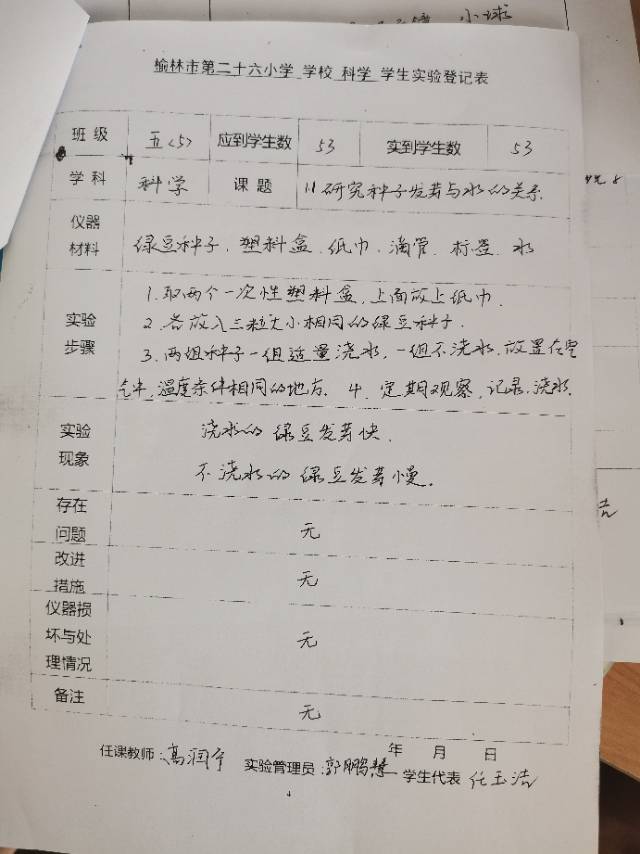 小球
榆林市第二十六小学 学校 科学 学生实验登记表
班级 五〈5〉 应到学生数 53 实到学生数 53
学科 科学 课题 11 研究种子发芽与水的关系
仪器材料 绿豆种子、塑料盒、纸巾、滴管、标签、水
实验步骤 1.取两个一次性塑料盒,上面放上纸巾.
2.各放入三粒大小相同的绿豆种子.
3.两组种子一组适量浇水,一组不浇水.放置在空
气中,温度条件相同的地方. 4.定期观察,记录,浇水.
实验现象 浇水的绿豆发芽快.
不浇水的绿豆发芽慢.
存在问题 无
改进措施 无
仪器损坏与处理情况 无
备注 无
年 月 日
任课教师:高润宁 实验管理员:郭鹏慧 学生代表 任玉洁